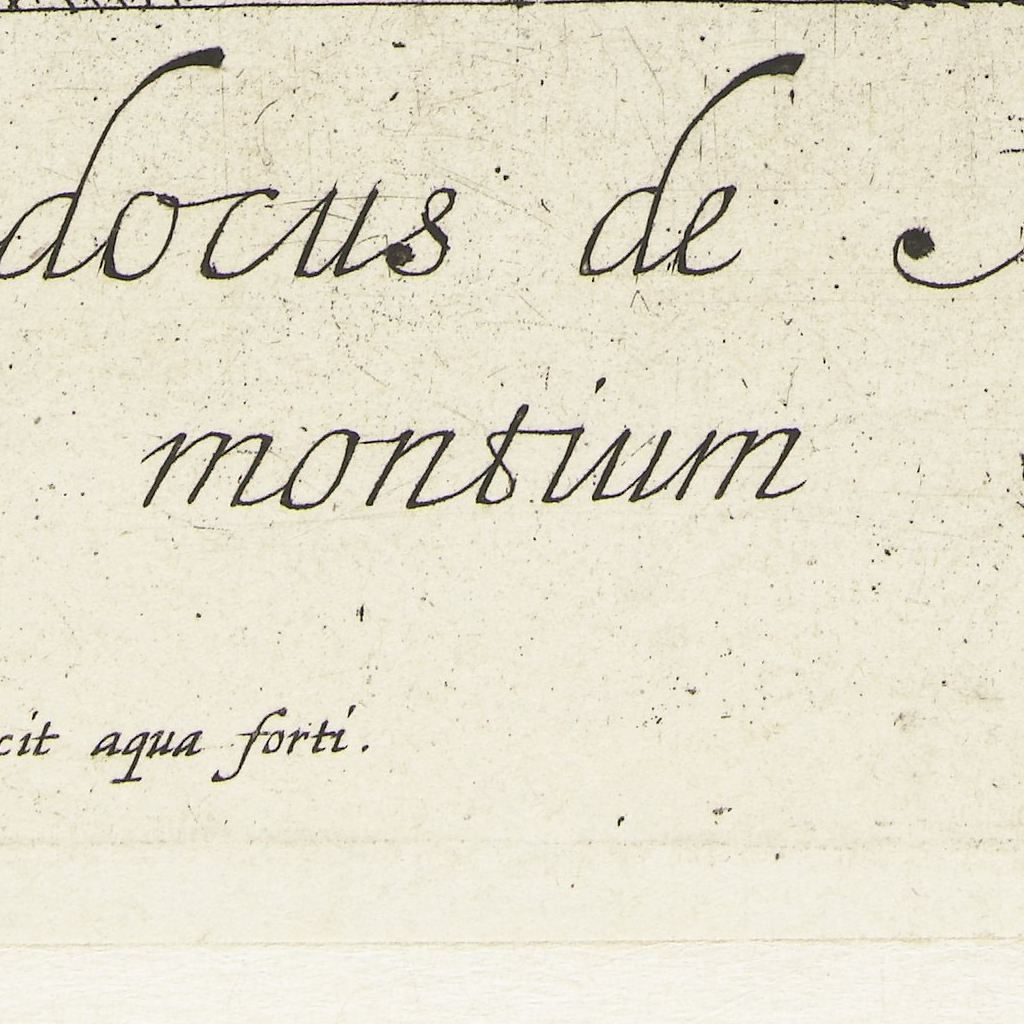 docus de
montium
cit aqua forti.